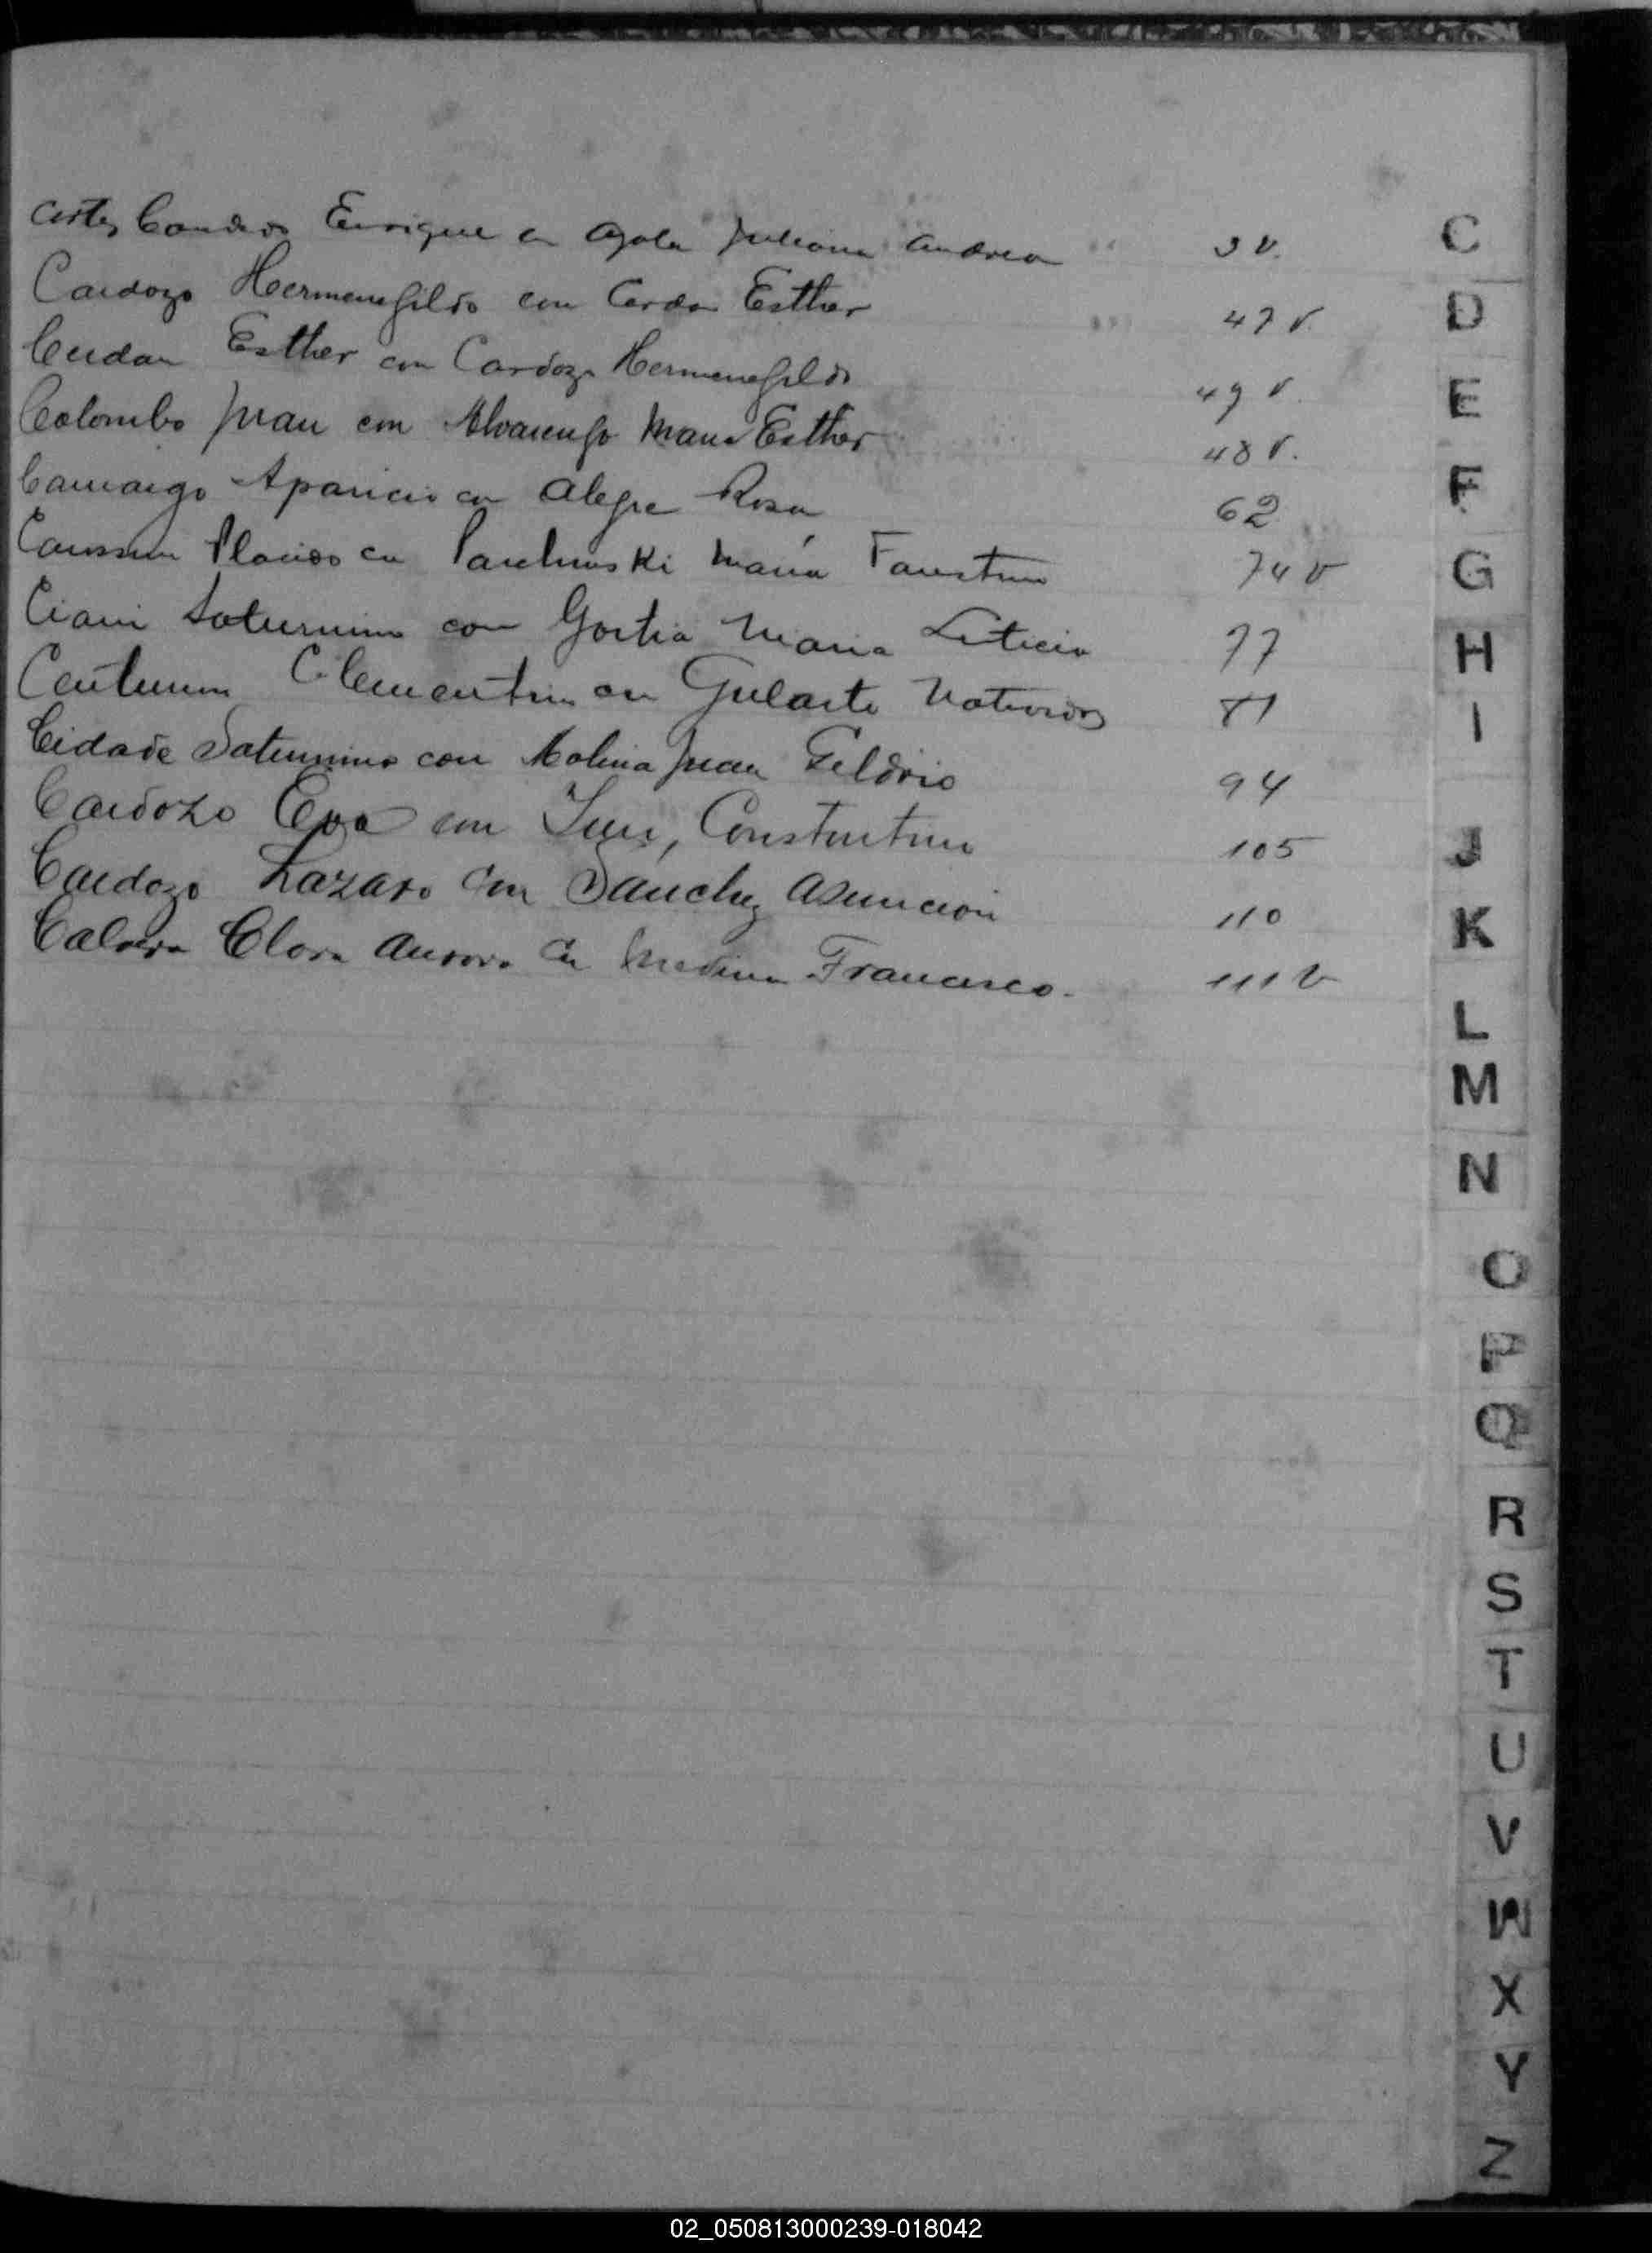 Enrique en Ayala Juliana Andrea 3 v. C
Cardozo Hermenegildo con Cerdan Esther 47 v. D
Cerdan Esther con Cardozo Hermenegildo 49 v. E
Colombo Juan con Alvarenga Maria Esther 48 v.
Camargo Aparicio con Alegre Rosa 62 F
Placido con María Faustina 74 v G
Ciani Saturnino con Maria Leticia 77 H
Clementina con Gularte I
Cidade Saturnino con Molina Juan 94
Cardozo Eva con Constantino 105 J
Cardozo Lazaro con Sanchez Asuncion 110 K
Clara Aurora con Medina Francisco. 111 v
L
M
N
O
P
Q
R
S
T
U
V
W
X
Y
Z
02_050813000239-018042